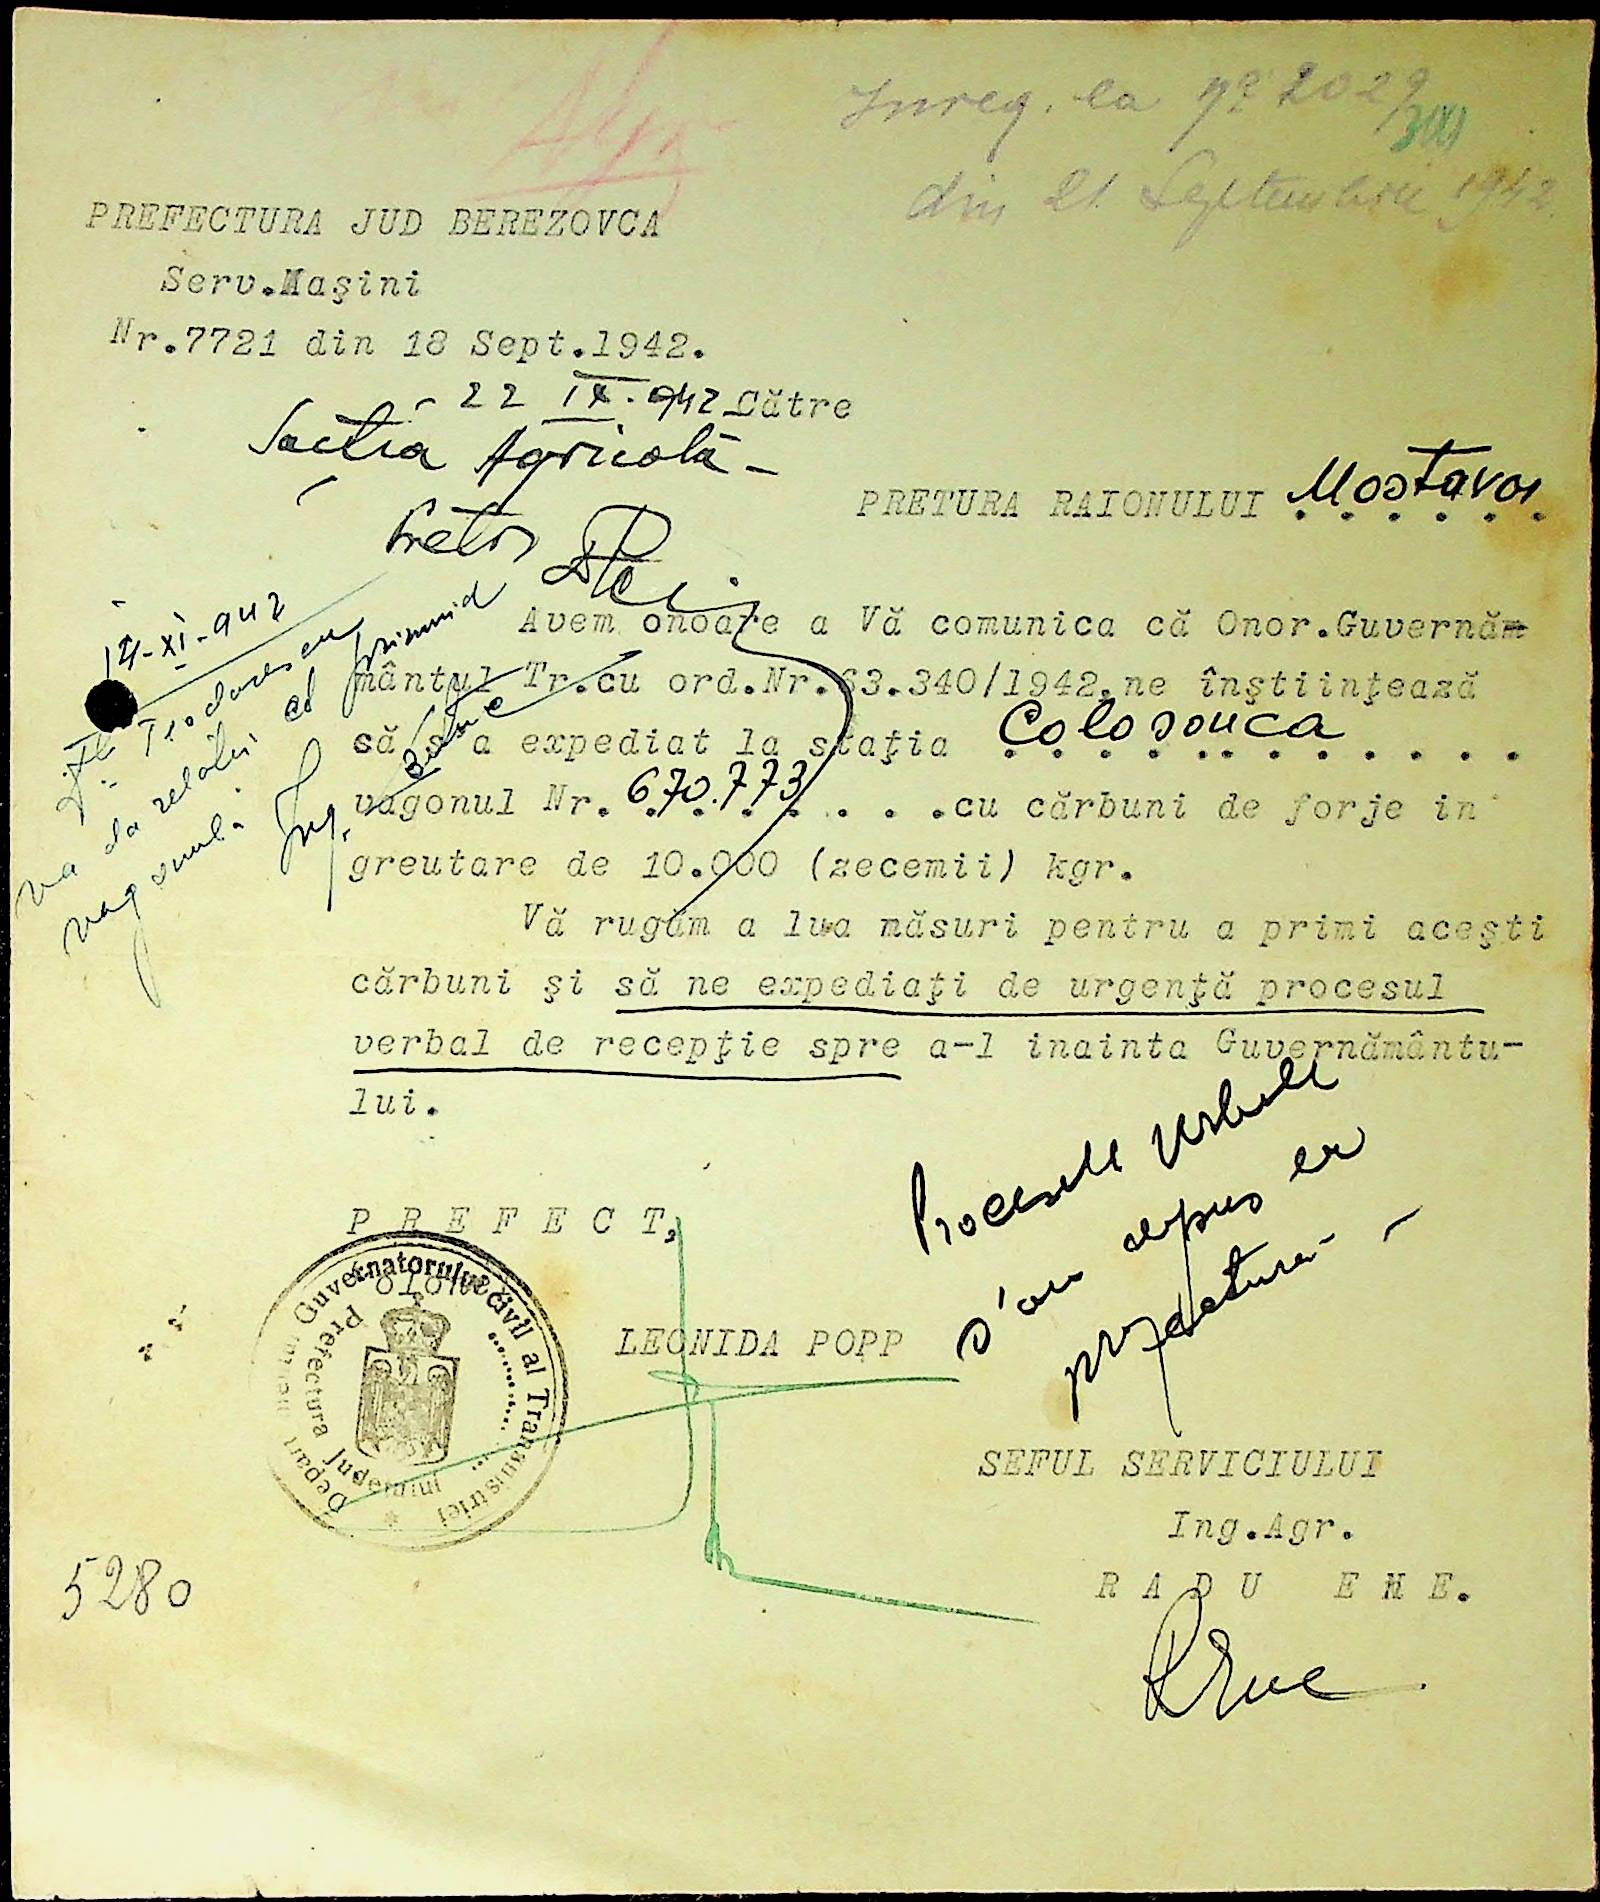 Inreg. la No 2029
din 21 Septembrie 1942
PREFECTURA JUD BEREZOVCA
Serv.Maşini
Nr.7721 din 18 Sept.1942.
22 IX.942 Către
Secţia Agricolă -
PRETURA RAIONULUI Mostavoi
Pretor
14-XI-942
Avem onoare a Vă comunica că Onor.Guvernăm
mântul Tr.cu ord.Nr.63.340/1942,ne înştiinţează
că s'a expediat la staţia Colosouca
vagonul Nr. 670.773 . . . .cu cărbuni de forje in
greutare de 10.000 (zecemii) kgr.
Dl. Teodorescu
va da relaţii
vagonul.
Ing.
Vă rugăm a lua măsuri pentru a primi aceşti
cărbuni şi să ne expediaţi de urgenţă procesul
verbal de recepţie spre a-l inainta Guvernământu-
lui.
Procesele verbale
s'au depus la
prefectura -
P R E F E C T,
LEONIDA POPP
Guvernatorului civil al Transnistriei
Prefectura Judeţului
SEFUL SERVICIULUI
Ing.Agr.
R A D U E N E.
REne
5280